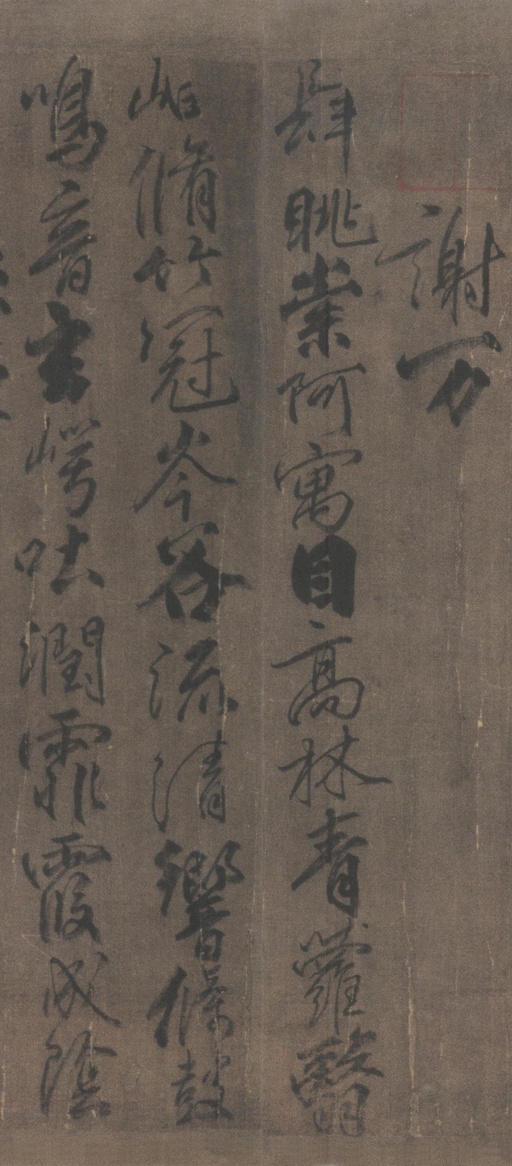 謝万
肆眺崇阿寓目高林青蘿翳
岫脩竹冠岑谷流清響條鼓
鳴音玄崿吐潤霏霧成陰